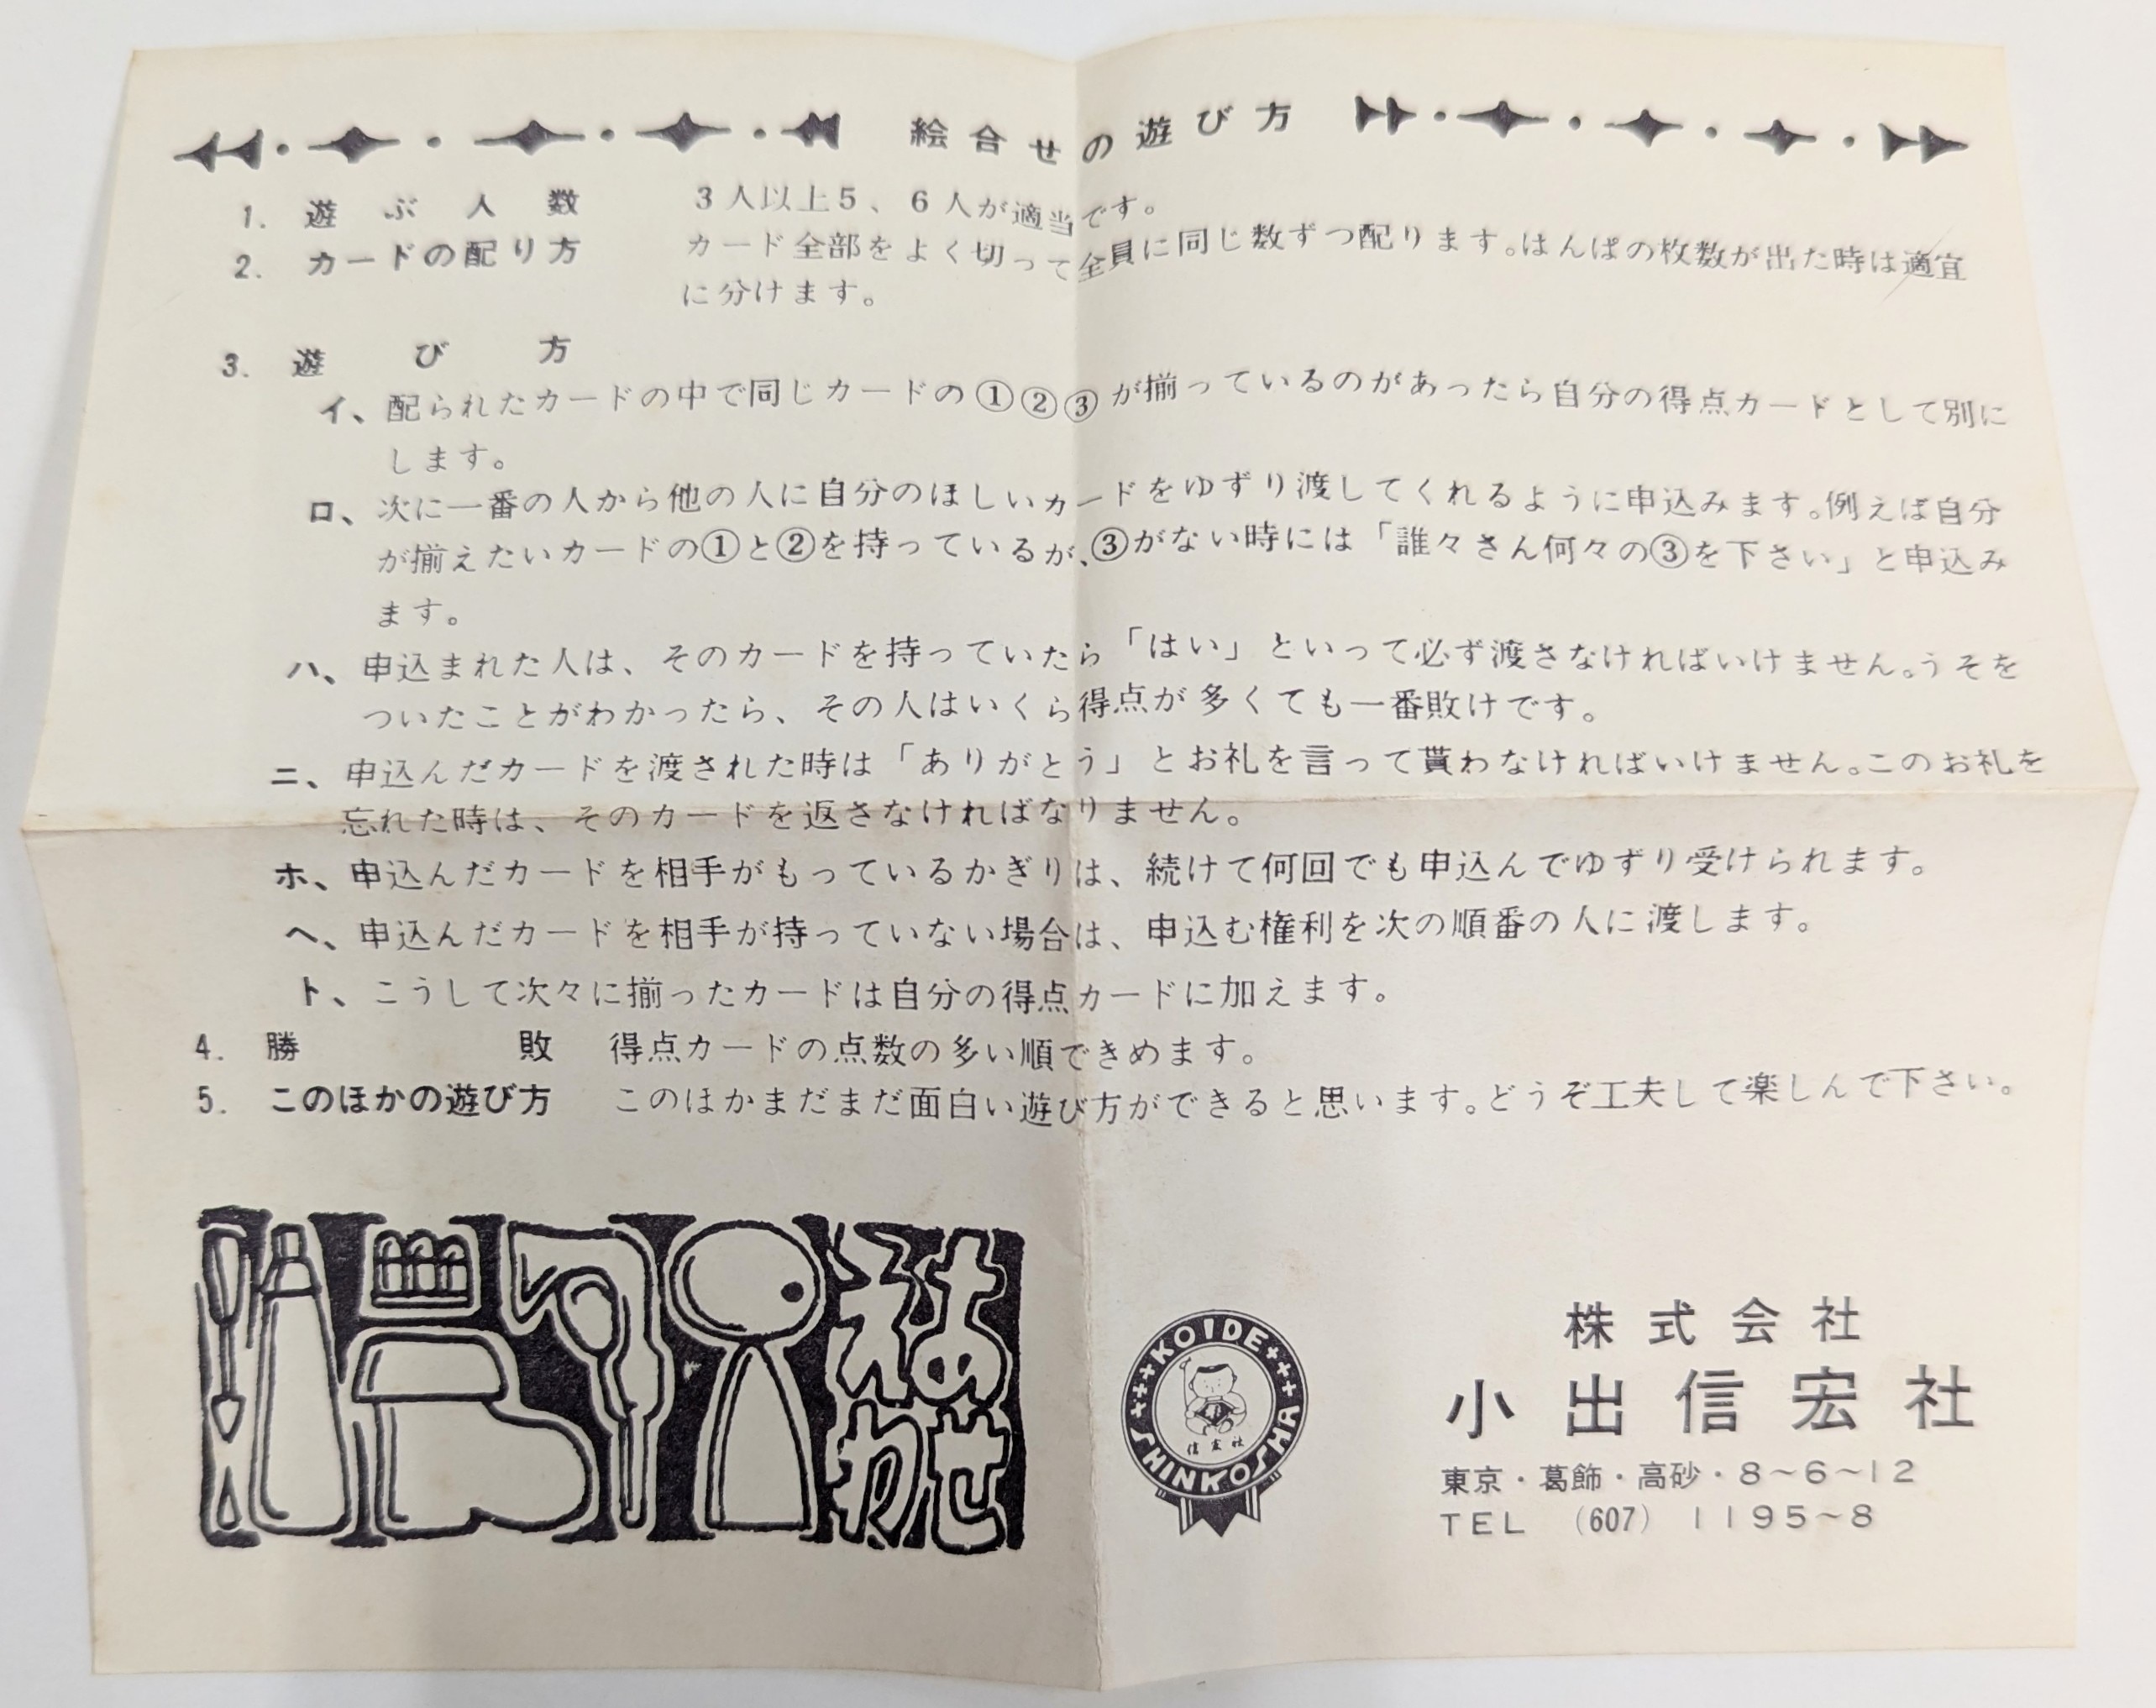 絵合せの遊び方
1. 遊ぶ人数 3人以上5、6人が適当です。
2. カードの配り方 カード全部をよく切って全員に同じ数ずつ配ります。はんぱの枚数が出た時は適宜
に分けます。
3. 遊び方
イ、配られたカードの中で同じカードの①②③が揃っているのがあったら自分の得点カードとして別に
します。
ロ、次に一番の人から他の人に自分のほしいカードをゆずり渡してくれるように申込みます。例えば自分
が揃えたいカードの①と②を持っているが、③がない時には「誰々さん何々の③を下さい」と申込み
ます。
ハ、申込まれた人は、そのカードを持っていたら「はい」といって必ず渡さなければいけません。うそを
ついたことがわかったら、その人はいくら得点が多くても一番敗けです。
ニ、申込んだカードを渡された時は「ありがとう」とお礼を言って貰わなければいけません。このお礼を
忘れた時は、そのカードを返さなければなりません。
ホ、申込んだカードを相手がもっているかぎりは、続けて何回でも申込んでゆずり受けられます。
ヘ、申込んだカードを相手が持っていない場合は、申込む権利を次の順番の人に渡します。
ト、こうして次々に揃ったカードは自分の得点カードに加えます。
4. 勝敗 得点カードの点数の多い順できめます。
5. このほかの遊び方 このほかまだまだ面白い遊び方ができると思います。どうぞ工夫して楽しんで下さい。
えあわせ
KOIDE
信宏社
SHINKOSHA
株式会社
小出信宏社
東京・葛飾・高砂・8~6~12
TEL (607) 1195~8